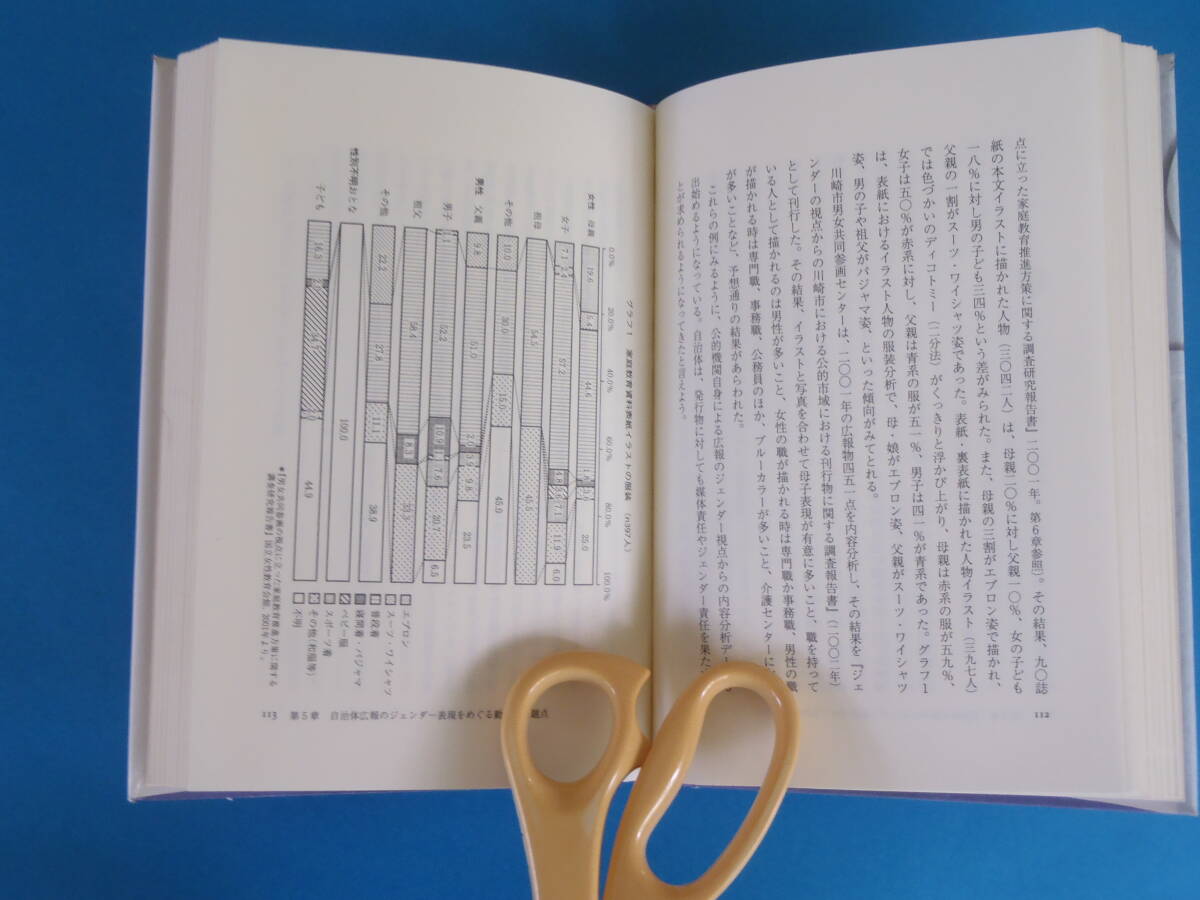 点に立った家庭教育推進方策に関する調査研究報告書』二〇〇一年。第6章参照)。その結果、九〇誌
紙の本文イラストに描かれた人物(三〇四二人)は、母親二〇%に対し父親一〇%、女の子ども
一八%に対し男の子ども三四%という差がみられた。また、母親の三割がエプロン姿で描かれ、
父親の一割がスーツ・ワイシャツ姿であった。表紙・裏表紙に描かれた人物イラスト(三九七人)
では色づかいのディコトミー(二分法)がくっきりと浮かび上がり、母親は赤系の服が五九%、
女子は五〇%が赤系に対し、父親は青系の服が五一%、男子は四一%が青系であった。グラフ1
は、表紙におけるイラスト人物の服装分析で、母・娘がエプロン姿、父親がスーツ・ワイシャツ
姿、男の子や祖父がパジャマ姿、といった傾向がみてとれる。
川崎市男女共同参画センターは、二〇〇一年の広報物四五一点を内容分析し、その結果を『ジェ
ンダーの視点からの川崎市における公的市域における刊行物に関する調査報告書』(二〇〇二年)
として刊行した。その結果、イラストと写真を合わせて母子表現が有意に多いこと、職を持って
いる人として描かれるのは男性が多いこと、女性の職が描かれる時は専門職か事務職、男性の職
が描かれる時は専門職、事務職、公務員のほか、ブルーカラーが多いこと、介護センターに
が多いことなど、予想通りの結果があらわれた。
これらの例にみるように、公的機関自身による広報のジェンダー視点からの内容分析デー
出始めるようになっている。自治体は、発行物に対しても媒体責任やジェンダー責任を果た
とが求められるようになってきたと言えよう。
112
グラフ1 家庭教育資料表紙イラストの服装 (n397人)
0.0% 20.0% 40.0% 60.0% 80.0% 100.0%
女性 母親 19.6 5.4 44.6 25.0
女子 7.1 57.2 7.1 11.9 6.0
祖母 54.5 45.5
その他 10.0 30.0 15.0 45.0
男性 父親 9.8 51.0 2.0 9.8 23.5
男子 52.2 10.9 7.6 20.7 6.5
祖父 58.4 8.3 33.3
その他 22.2 27.8 11.1 38.9
性別不明おとな 100.0
子ども 16.3 44.9
エプロン
スーツ・ワイシャツ
普段着
寝間着・パジャマ
ベビー服
スポーツ着
その他(和服等)
不明
*『男女共同参画の視点に立った家庭教育推進方策に関する
調査研究報告書』国立女性教育会館、2001年より。
113 第5章 自治体広報のジェンダー表現をめぐる動 題点